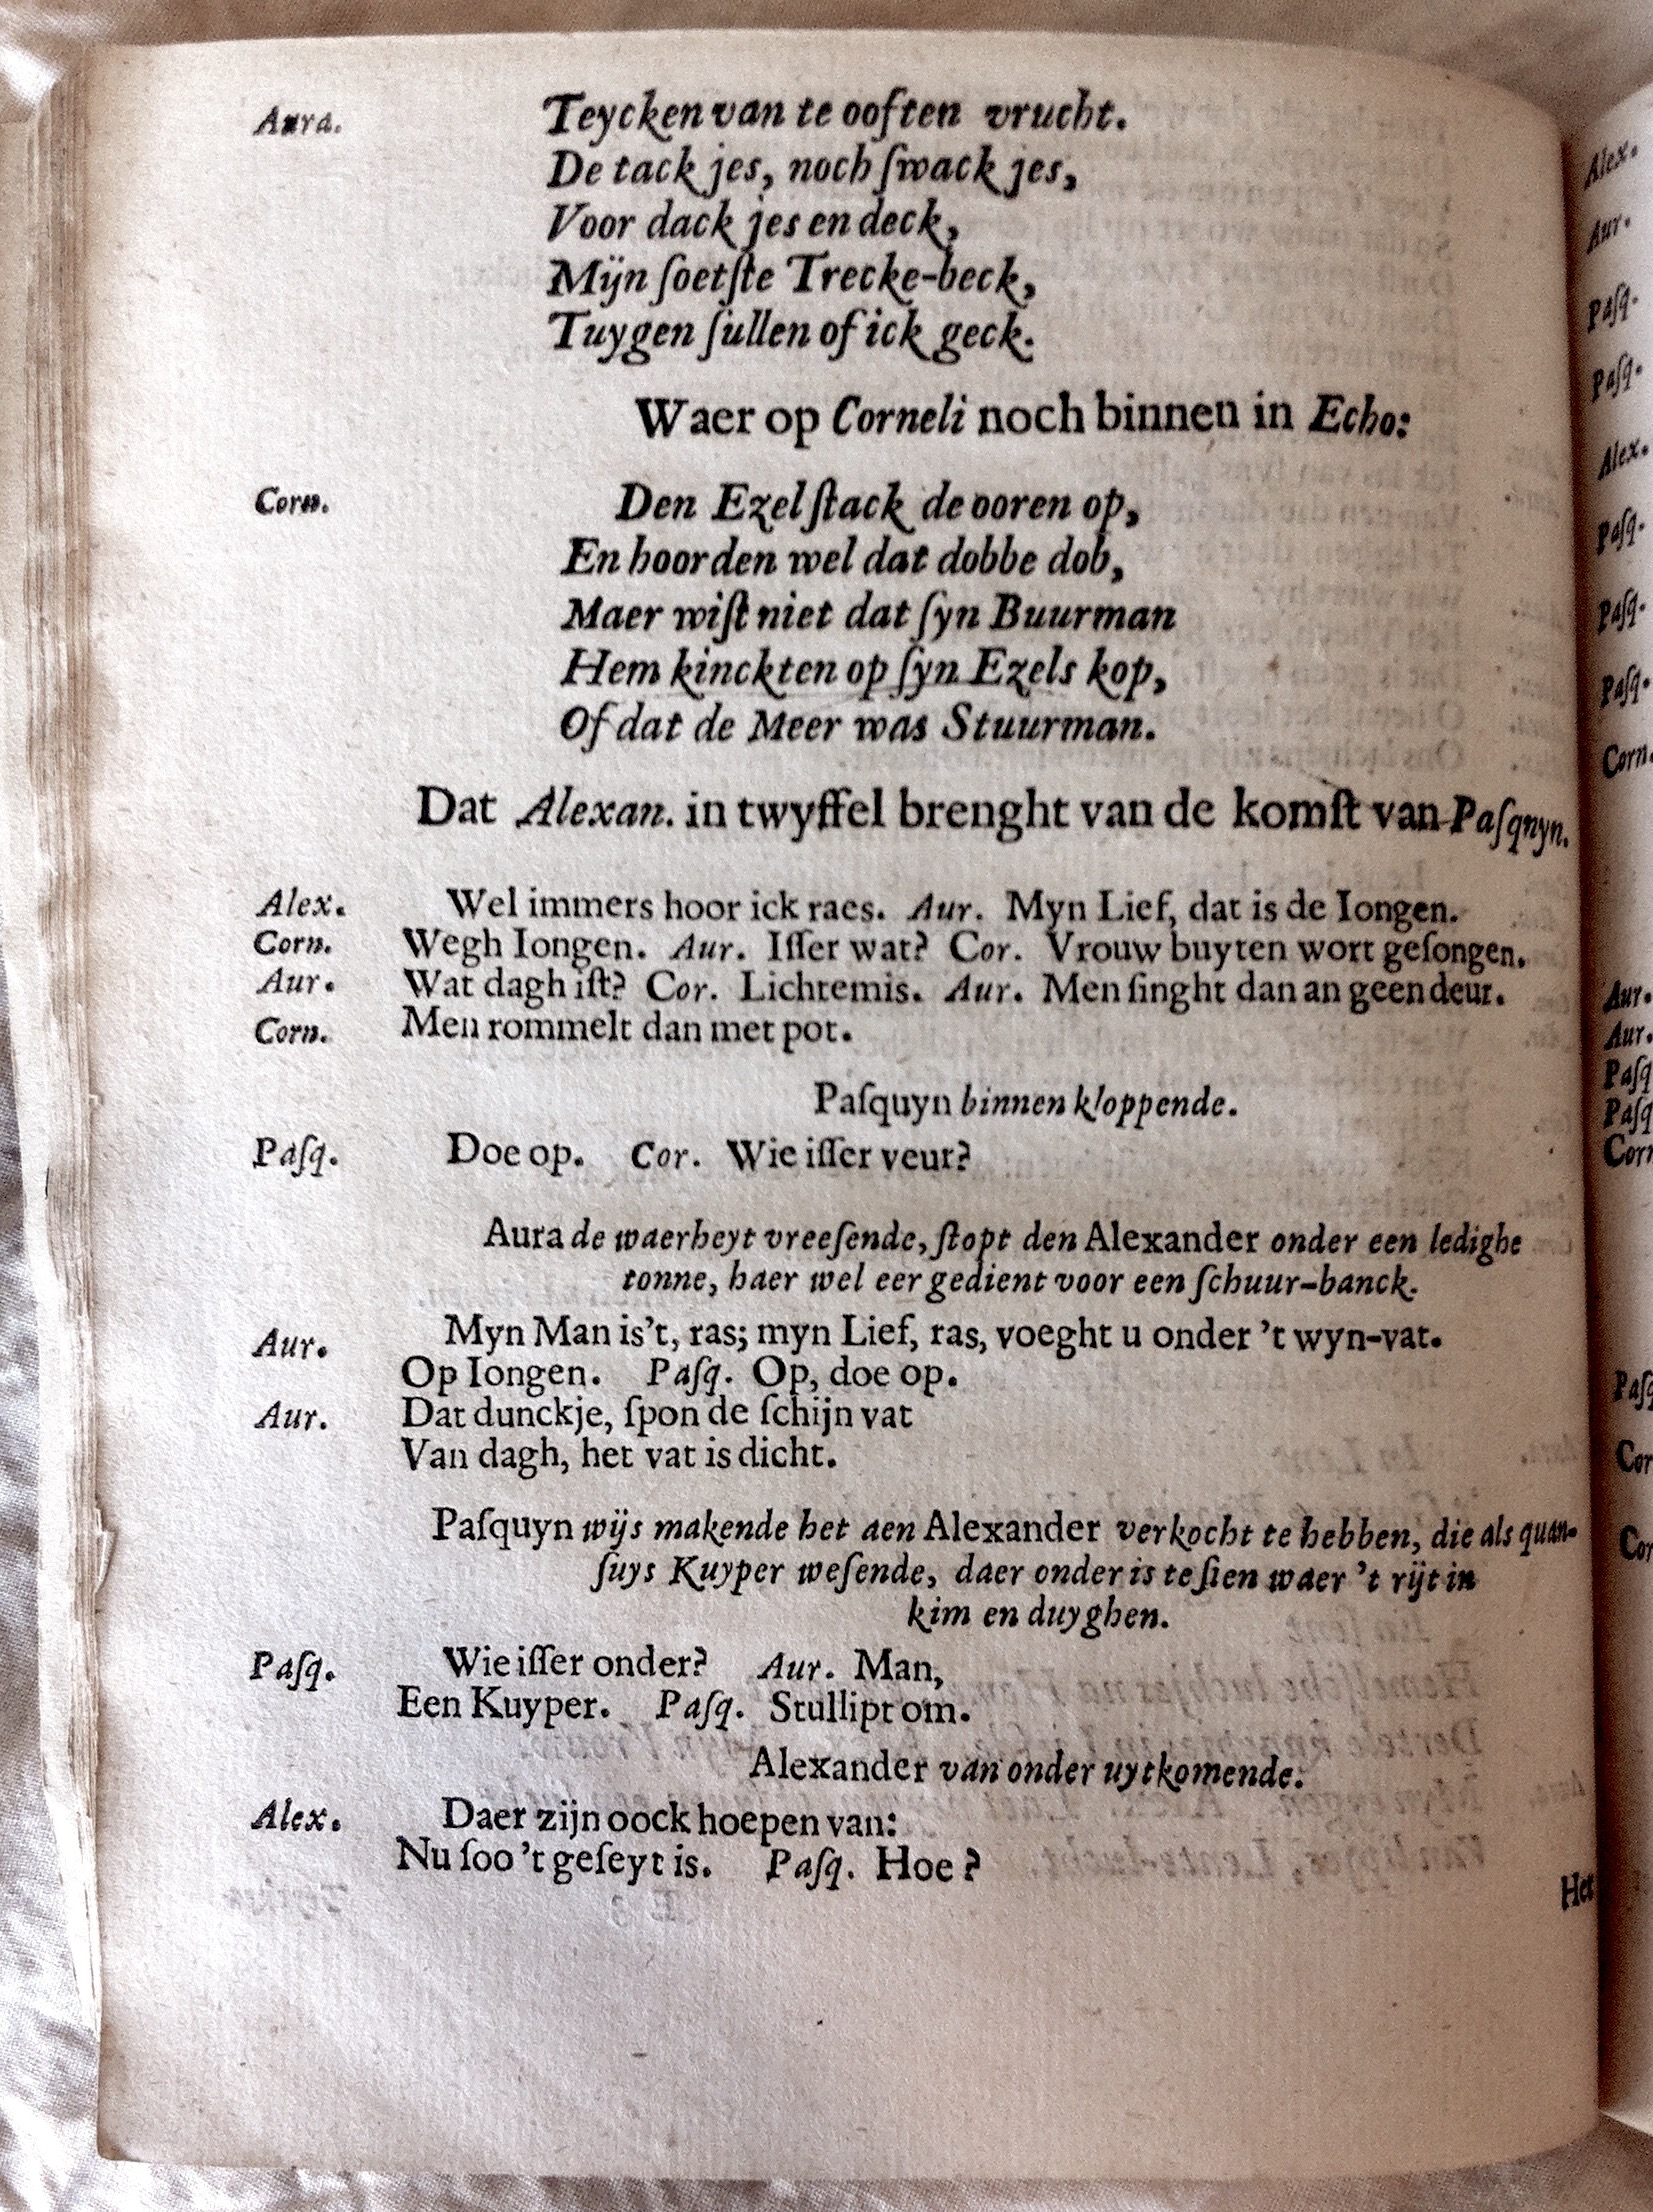 Aura. Teycken van te ooſten vrucht.
De tackjes, noch ſwackjes,
Voor dackjes en deck,
Mijn ſoetſte Trecke-beck,
Tuygen ſullen of ick geck.
Waer op Corneli noch binnen in Echo:
Corn. Den Ezel ſtack de ooren op,
En hoorden wel dat dobbe dob,
Maer wiſt niet dat ſyn Buurman
Hem kinckten op ſyn Ezels kop,
Of dat de Meer was Stuurman.
Dat Alexan. in twyffel brenght van de komſt van Paſqnyn.
Alex. Wel immers hoor ick raes. Aur. Myn Lief, dat is de Iongen.
Corn. Wegh Iongen. Aur. Iſſer wat? Cor. Vrouw buyten wort geſongen.
Aur. Wat dagh iſt? Cor. Lichtemis. Aur. Men ſinght dan an geen deur.
Corn. Men rommelt dan met pot.
Paſquyn binnen kloppende.
Paſq. Doe op. Cor. Wie iſſer veur?
Aura de waerheyt vreeſende, ſtopt den Alexander onder een ledighe
tonne, haer wel eer gedient voor een ſchuur-banck.
Aur. Myn Man is't, ras; myn Lief, ras, voeght u onder 't wyn-vat.
Op Iongen. Paſq. Op, doe op.
Aur. Dat dunckje, ſpon de ſchijn vat
Van dagh, het vat is dicht.
Paſquyn wijs makende het aen Alexander verkocht te hebben, die als quan-
ſuys Kuyper weſende, daer onder is te ſien waer 't rijt in
kim en duyghen.
Paſq. Wie iſſer onder? Aur. Man,
Een Kuyper. Paſq. Stullipt om.
Alexander van onder uytkomende.
Alex. Daer zijn oock hoepen van:
Nu ſoo 't geſeyt is. Paſq. Hoe?
Het
Alex.
Aur.
Paſq.
Paſq.
Alex.
Paſq.
Paſq.
Paſq.
Corn.
Aur.
Aur.
Paſq
Paſq
Corn
Paſq
Cor
Cor